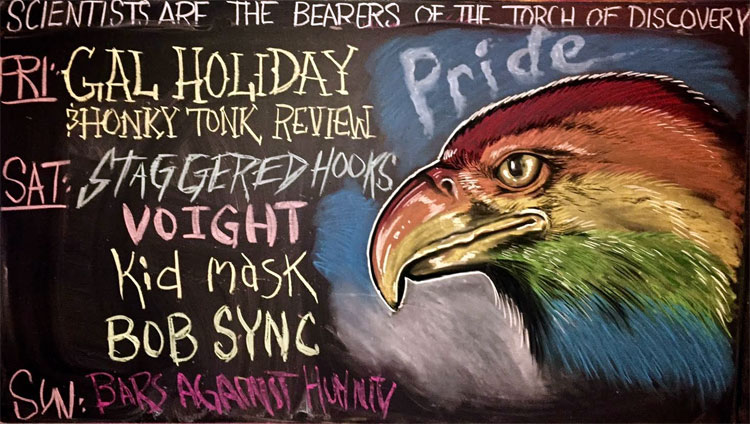 SCIENTISTS ARE THE BEARERS OF THE TORCH OF DISCOVERY
Pride
FRI: GAL HOLIDAY
& HONKY TONK REVIEW
SAT: STAGGERED HOOKS
VOIGHT
Kid mask
BOB SYNC
SUN: BARS AGAINST